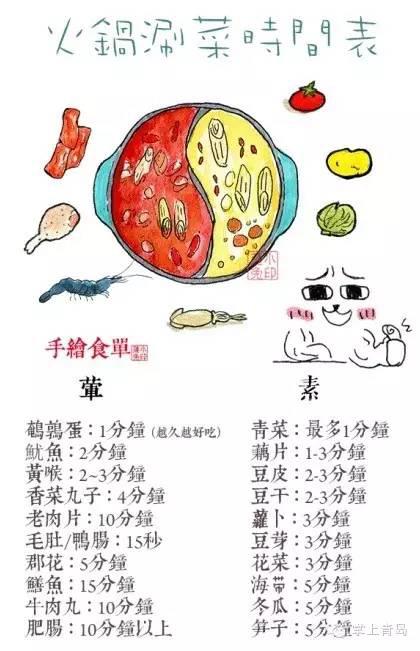 火鍋涮菜時間表
手繪食單
葷
鵪鶉蛋：1分鐘 (越久越好吃)
魷魚：2分鐘
黃喉：2~3分鐘
香菜丸子：4分鐘
老肉片：10分鐘
毛肚/鴨腸：15秒
郡花：5分鐘
鱔魚：15分鐘
牛肉丸：10分鐘
肥腸：10分鐘以上
素
青菜：最多1分鐘
藕片：1-3分鐘
豆皮：2-3分鐘
豆干：2-3分鐘
蘿卜：3分鐘
豆芽：3分鐘
花菜：3分鐘
海帶：5分鐘
冬瓜：5分鐘
笋子：5分鐘
掌上青岛